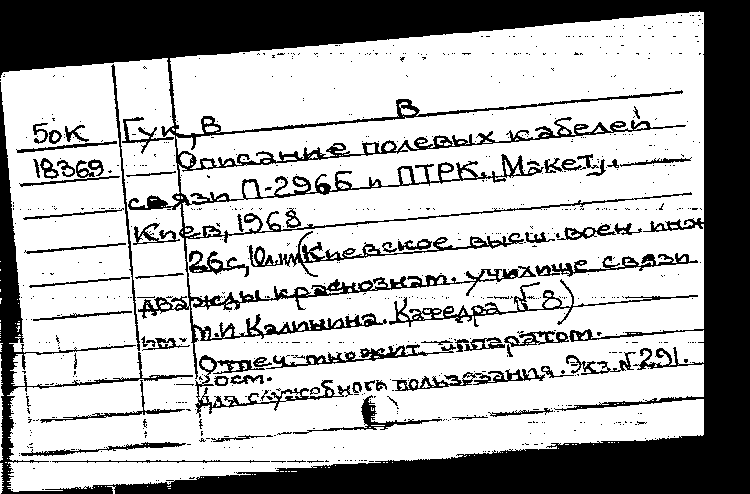 В
50К Гук, В
18369. Описание полевых кабелей
связи П-296Б и ПТРК. [Макет].
Киев, 1968.
26с, 10 илл (Киевское высш. воен. инж
дважды краснознам. училище связи
им. М.И. Калинина. Кафедра №8)
Отпеч. множит. аппаратом.
30см.
Для служебного пользования. Экз. №291.